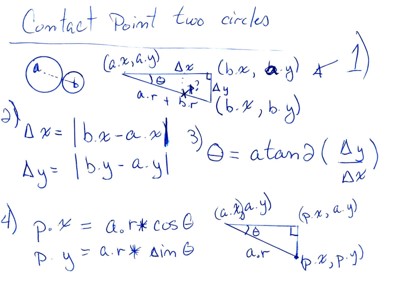 Contact Point two circles
1)
a. b.
(a.x, a.y) Δx (b.x, a.y)
θ ? Δy
a.r + b.r (b.x, b.y)
2) Δx = |b.x - a.x|
Δy = |b.y - a.y|
3) θ = atan2 (Δy/Δx)
4) p.x = a.r * cos θ
p.y = a.r * sin θ
(a.x, a.y) (p.x, a.y)
θ
a.r (p.x, p.y)